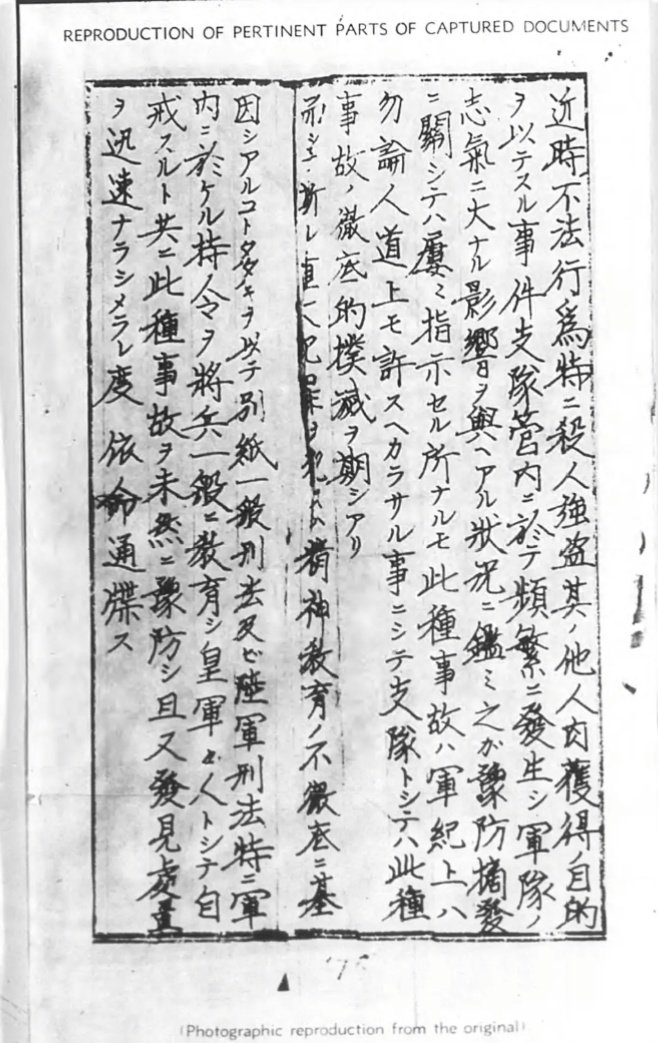 REPRODUCTION OF PERTINENT PARTS OF CAPTURED DOCUMENTS
近時不法行爲特ニ殺人強盗其ノ他人肉獲得ノ目的
ヲ以テスル事件支隊管内ニ於テ頻繁ニ發生シ軍隊ノ
志氣ニ大ナル影響ヲ與ヘアル狀況ニ鑑ミ之カ豫防摘發
ニ關シテハ屢ミ指示セル所ナルモ此種事故ハ軍紀上ハ
勿論人道上モ許スヘカラサル事ニシテ支隊トシテハ此種
事故ノ徹底的撲滅ヲ期シアリ
斯ル重大犯罪ヲ精神教育ノ不徹底ニ基
因シアルコト多キヲ以テ別紙一般刑法及ビ陸軍刑法特ニ軍
内ニ於ケル特令ヲ將兵一般ニ教育シ皇軍人トシテ自
戒スルト共ニ此種事故ヲ未然ニ豫防シ且又發見處置
ヲ迅速ナラシメラレ度依命通牒ス
(Photographic reproduction from the original)